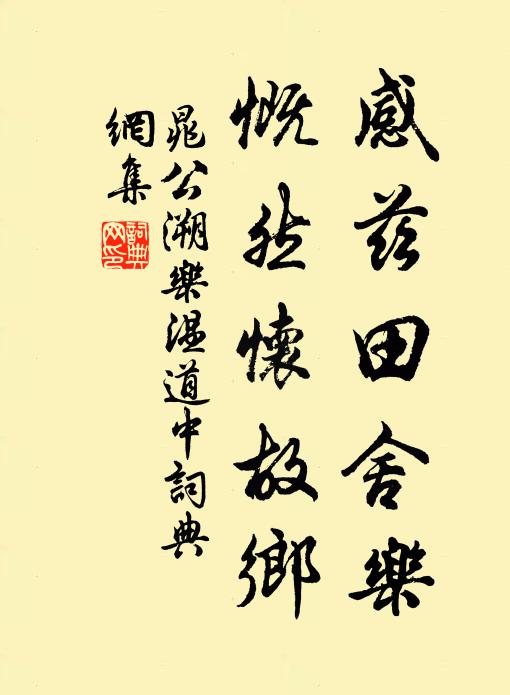 感茲田舍樂
慨然懷故鄉
晁公溯樂溫道中詞典
網集
詞典网印